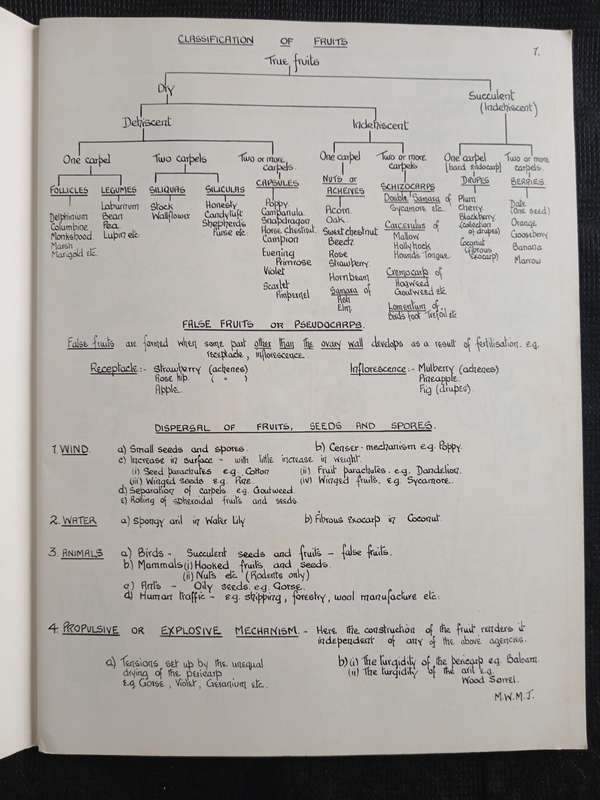 CLASSIFICATION OF FRUITS
7.
True fruits
Dry
Succulent
(Indehiscent)
Dehiscent
Indehiscent
One carpel
Two carpels
Two or more
carpels
One carpel
Two or more
carpels
One carpel
(hard endocarp)
Two or more
carpels
FOLLICLES
Delphinium
Columbine
Monkshood
Marsh
Marigold etc.
LEGUMES
Laburnum
Bean
Pea
Lupin etc
SILIQUAS
Stock
Wallflower
SILICULAS
Honesty
Candytuft
Shepherds
Purse etc
CAPSULES
Poppy
Campanula
Snapdragon
Horse chestnut
Campion
Evening
Primrose
Violet
Scarlet
Pimpernel
NUTS or
ACHENES
Acorn
Oak
Sweet chestnut
Beech
Rose
Strawberry
Hornbeam
Samara of
Ash
Elm
SCHIZOCARPS
Double Samara of
Sycamore etc.
Carcerulus of
Mallow
Hollyhock
Hounds Tongue
Cremocarp of
Hogweed
Goutweed etc
Lomentum of
Birds Foot Trefoil etc
DRUPES
Plum
Cherry
Blackberry
(collection
of drupes)
Coconut
(fibrous
exocarp)
BERRIES
Date
(One seed)
Orange
Gooseberry
Banana
Marrow
FALSE FRUITS or PSEUDOCARPS.
False fruits are formed when some part other than the ovary wall develops as a result of fertilisation. e.g.
receptacle, inflorescence.
Receptacle:- Strawberry (achenes)
Rose hip. ( " )
Apple.
Inflorescence:- Mulberry (achenes)
Pineapple.
Fig (drupes).
DISPERSAL OF FRUITS, SEEDS AND SPORES.
1. WIND. a) Small seeds and spores. b) Censer-mechanism e.g. Poppy.
c) Increase in surface - with little increase in weight.
(i) Seed parachutes e.g. Cotton (ii) Fruit parachutes. e.g. Dandelion.
(iii) Winged seeds e.g. Pine. (iv) Winged fruits. e.g. Sycamore.
d) Separation of carpels e.g. Goutweed.
e) Rolling of spheroidal fruits and seeds.
2. WATER a) Spongy aril in Water Lily b) Fibrous Exocarp in Coconut.
3. ANIMALS a) Birds - Succulent seeds and fruits - false fruits.
b) Mammals (i) Hooked fruits and seeds.
(ii) Nuts etc (Rodents only)
c) Ants - Oily seeds. e.g. Gorse.
d) Human traffic - e.g. shipping, forestry, wool manufacture etc.
4. PROPULSIVE OR EXPLOSIVE MECHANISM. - Here the construction of the fruit renders it
independent of any of the above agencies.
a) Tensions set up by the unequal
drying of the pericarp
e.g Gorse, Violet, Geranium etc.
b) (i) The turgidity of the pericarp e.g. Balsam.
(ii) The turgidity of the aril e.g.
Wood Sorrel.
M.W.M.J.